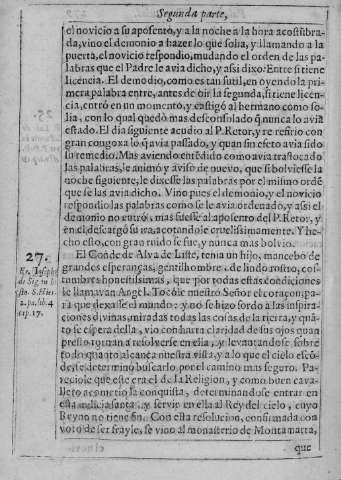 Segunda parte,
el novicio a su aposento, y a la noche a la hora acostũbra-
da, vino el demonio a hazer lo que solia, y llamando a la
puerta, el novicio respondio, mudando el orden de las pa-
labras que el Padre le avia dicho, y assi dixo: Entre si tiene
licencia. El demonio, como es tan sutil, en oyendo la pri-
mera palabra entre, antes de oir la segunda, si tiene licen-
cia, entró en un momento, y castigó al hermano como so-
lia, con lo qual quedò mas desconsolado q̃ nunca lo avia
estado. El dia siguiente acudio al P. Retor, y le refirio con
gran congoxa lo q̃ avia passado, y quan sin efeto avia sido
su remedio. Mas aviendo entẽdido como avia trastocado
las palabras, le animó y aviso de nuevo, que si bolviesse la
noche siguiente, le dixesse las palabras por el mismo ordẽ
que se las avia dicho. Vino pues el demonio, y el novicio
respondio las palabras como se le avia ordenado, y assi el
demonio no entró, mas fuesse al aposento del P. Retor, y
en el descargó su ira, acotandole cruelissimamente. Y he-
cho esto, con gran ruido se fue, y nunca mas bolvio.
27.
El Conde de Alva de Liste, tenia un hijo, mancebo de
grandes esperanças, gentilhombre, de lindo rostro, cos-
tumbres honestissimas, que por todas estas condiciones
le llamavan Angel. Tocóle nuestro Señor el coraçon pa-
ra que dexasse el mundo: y no se hizo sordo a las inspira-
ciones divinas, miradas todas las cosas de la tierra, y quã-
to se espera della, vio con harta claridad de sus ojos quan
presto tornan a resolverse en ella, y levantandose sobre
todo quanto alcança nuestra vista, y a lo que el cielo escõ-
de, se determinò buscarlo por el camino mas seguro. Pa-
reciole que este era el de la Religion, y como buen cava-
llero acometio la conquista, determinandose entrar en
esta milicia santa, y servir en ella al Rey del cielo, cuyo
Reyno no tiene fin. Con esta resolucion, confirmada con
voto de ser frayle, se vino al monasterio de Montamarta,
que
Fr. Joseph
de Sig. en la
4
cap. 17.